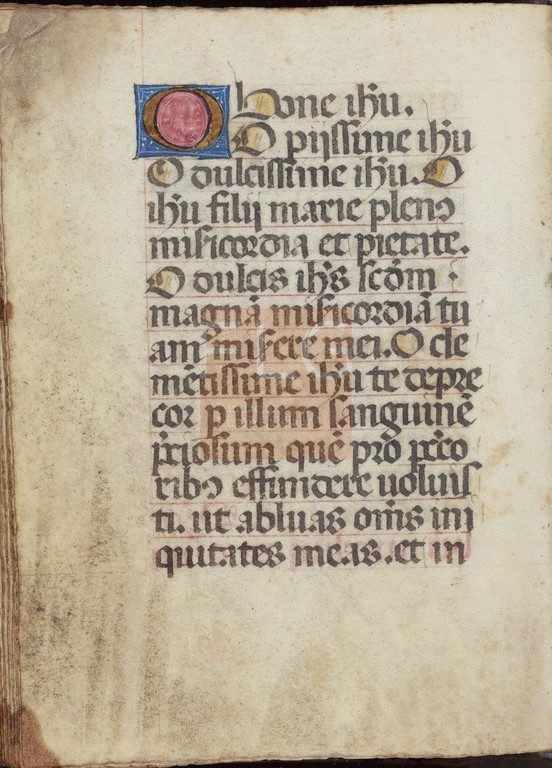 O bone ihu̅.
O pijssime ihu̅
O dulcissime ihu̅. O
ihu̅ filij marie plenꝰ
mis̅icordia et pietate.
O dulcis ihs̅ scd̅m
magnā mis̅icordiā tu
am miserere mei. O cle
mētissime ihu̅ te depre
cor ꝑ illum sanguinē
p̅ciosum quē pro pecco
ribꝰ effundere uoluis
ti. ut abluas om̅s ini
quitates meas. et in